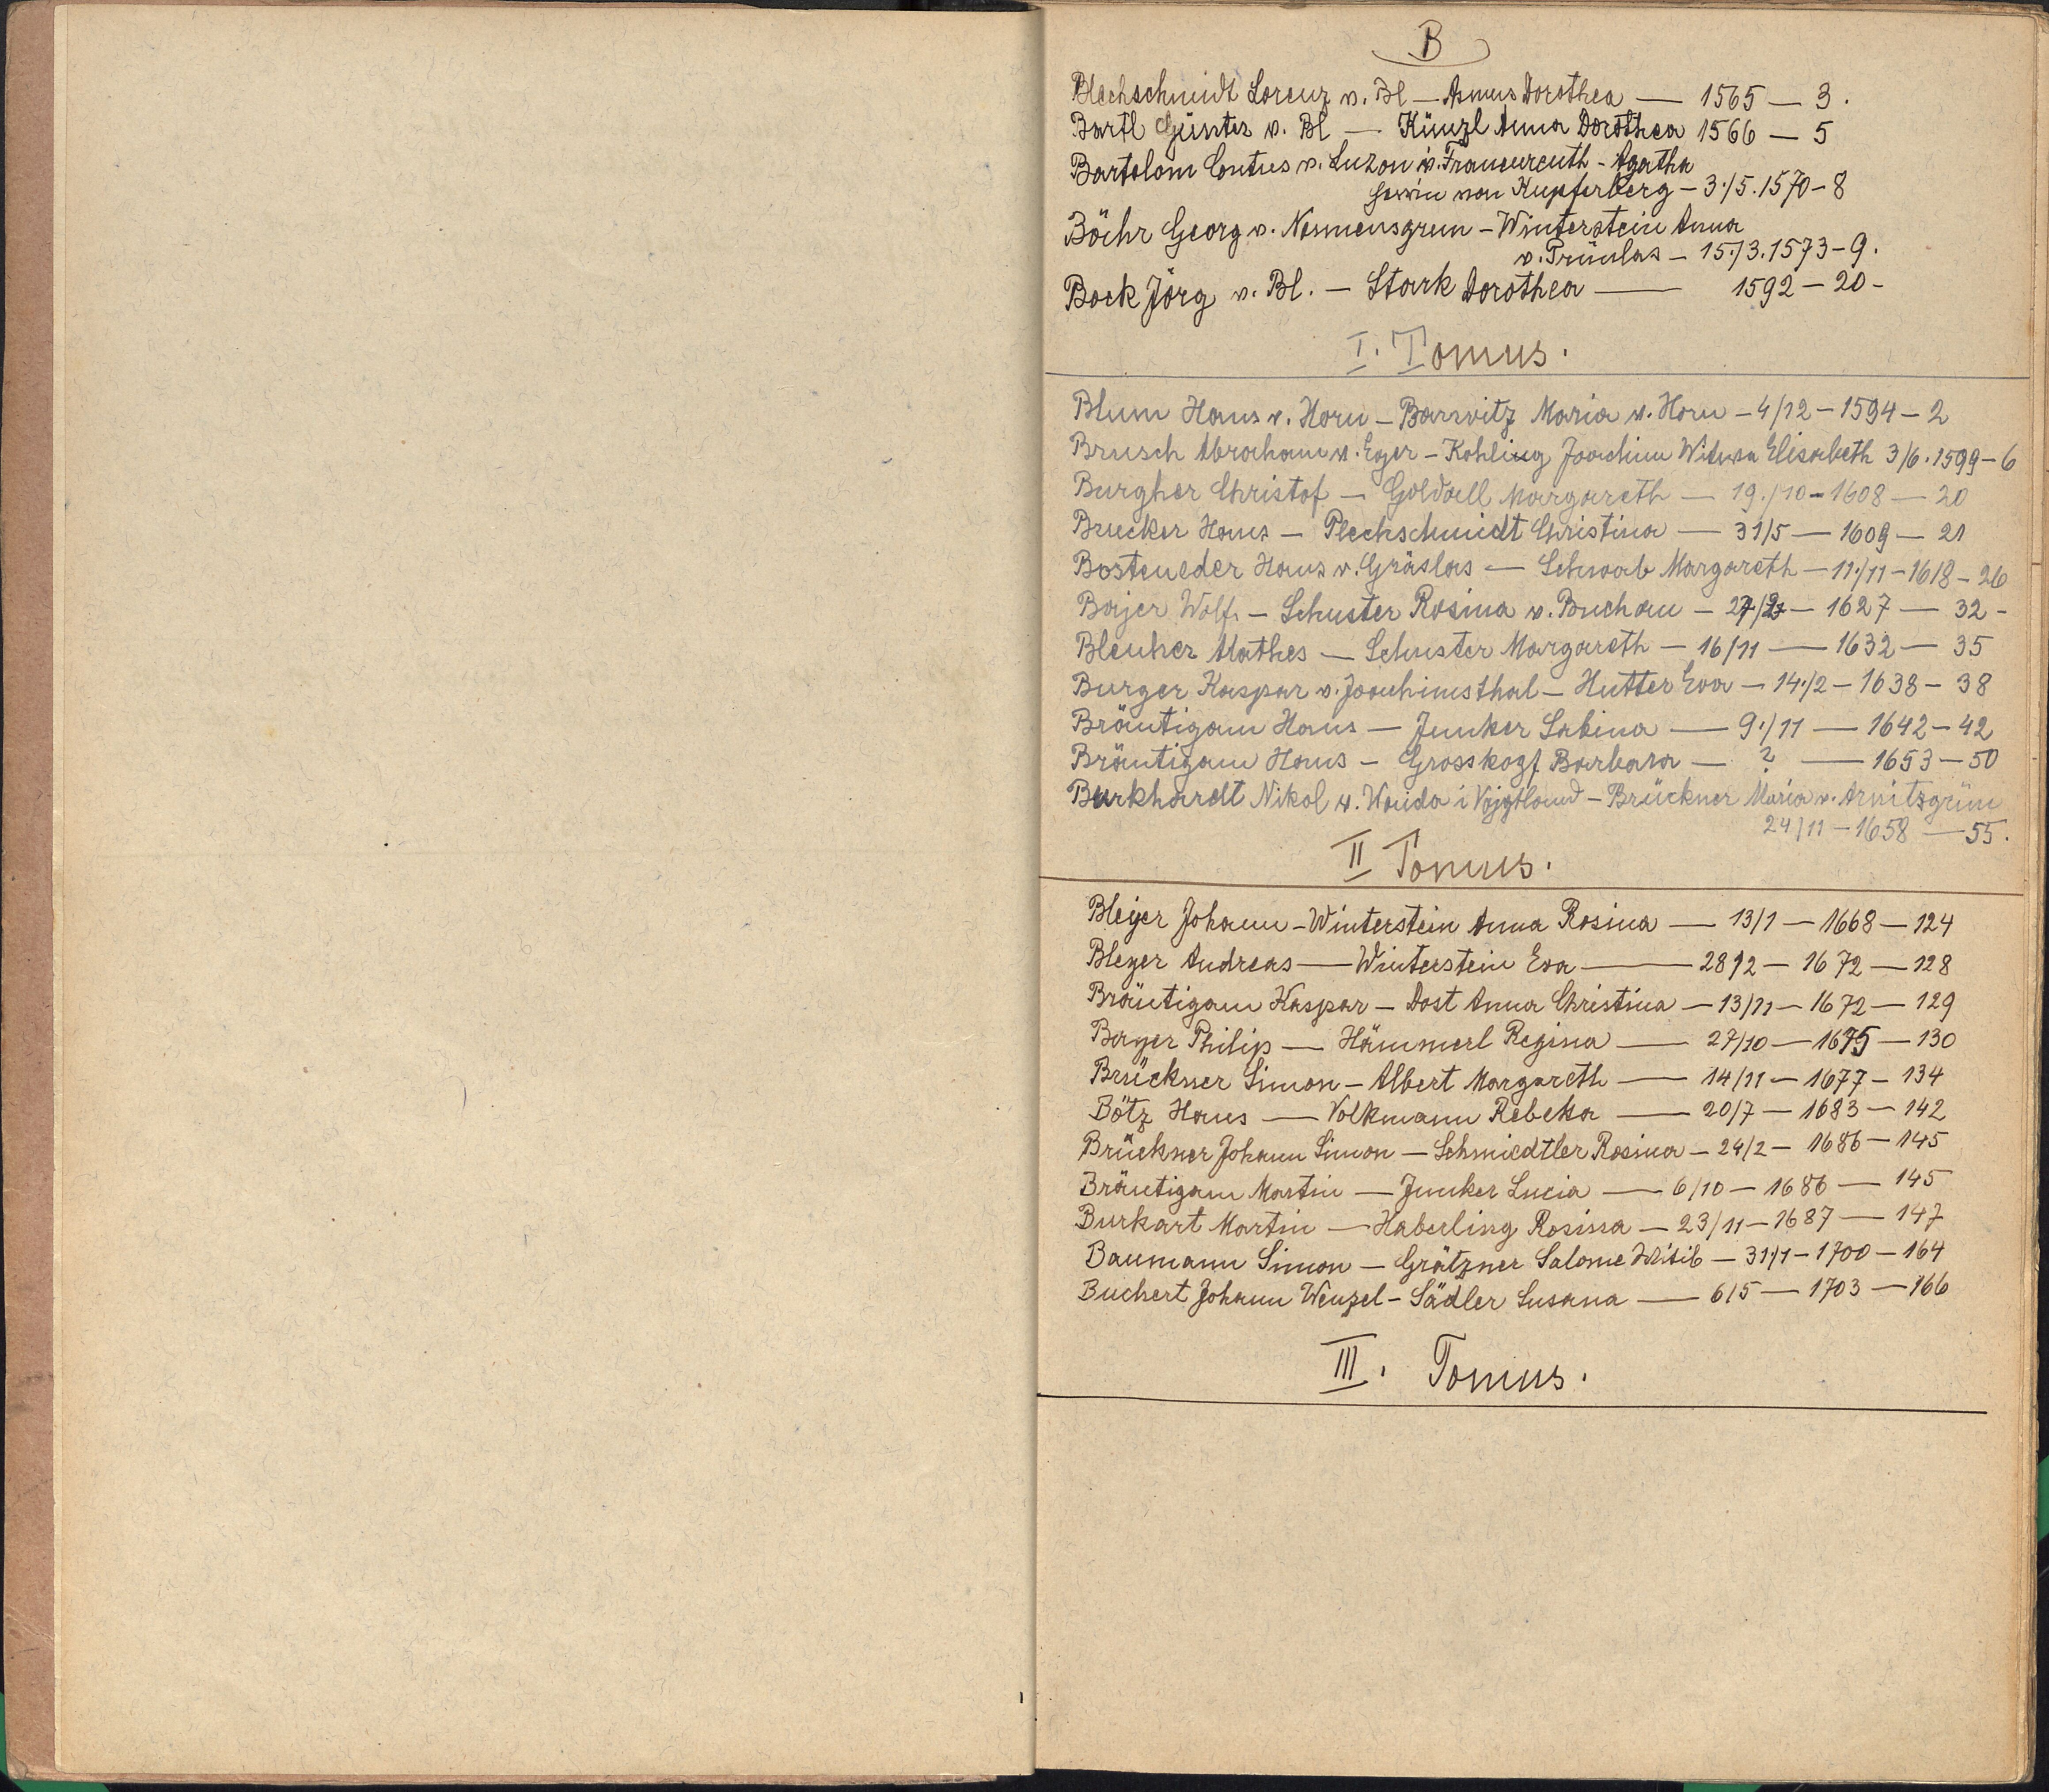 B
Blechschmidt Lorenz v. Bl — Asmus Dorothea — 1565 — 3.
Bartl Günter v. Bl — Künzl Anna Dorothea 1566 — 5
Bartolom Contus v. Luzon v. Fraueureuth - Agatha
von Kupferberg - 3./5. 1570 - 8
Böhr Georg v. - Winterstein Anna
v. Trünlas - 15./3. 1573 - 9.
Bock Jörg v. Bl. - Stark Dorothea — 1592 - 20 -
I. Tomus.
Blum Hans v. Horn - Barwitz Maria v. Horn - 4/12 - 1594 - 2
Brusch Abraham v. Eger - Kohling Joachim Witwa Elisabeth 3/6. 1599 - 6
Burgher Christof - Goldall Margareth - 19./10 - 1608 - 20
Bruecker Hans - Plechschmidt Christina - 31/5 - 1609 - 21
Bosteneder Hans v. Gräslas - Schwab Margareth - 11./11 - 1618 - 26
Bajer Wolf. - Schuster Rosina v. Buchau - 1627 - 32 -
Bleuher Mathes - Schuster Margareth - 16/11 - 1632 - 35
Burger Kaspar v. Joachimsthal - Hutter Eva - 14./2 - 1638 - 38
Bräutigam Hans - Junker Sabina - 9./11 - 1642 - 42
Bräutigam Hans - Grosskopf Barbara - ? - 1653 - 50
Burkhardt Nikol v. Weida i Vojgtland - Brückner Maria v. Arnitzgrün
24/11 - 1658 - 55.
II Tomus.
Bleijer Johann - Winterstein Anna Rosina - 13/1 - 1668 - 124
Bleyer Andreas - Winterstein Eva - 28/2 - 1672 - 128
Bräutigam Kaspar - Dost Anna Christina - 13/11 - 1672 - 129
Bayer Philip - Hämmerl Regina - 27/10 - 1675 - 130
Brückner Simon - Albert Margareth - 14/11 - 1677 - 134
Bötz Hans - Volkmann Rebeka - 20/7 - 1683 - 142
Brückner Johann Simon - Schmiedtler Rosina - 24/2 - 1686 - 145
Bräutigam Martin - Junker Lucia - 6/10 - 1686 - 145
Burkart Martin - Haberling Rosina - 23/11 - 1687 - 147
Baumann Simon - Grätzner Salome - 31/1 - 1700 - 164
Buchert Johann Wenzel - Sädler Susana - 6/5 - 1703 - 166
III. Tomus.